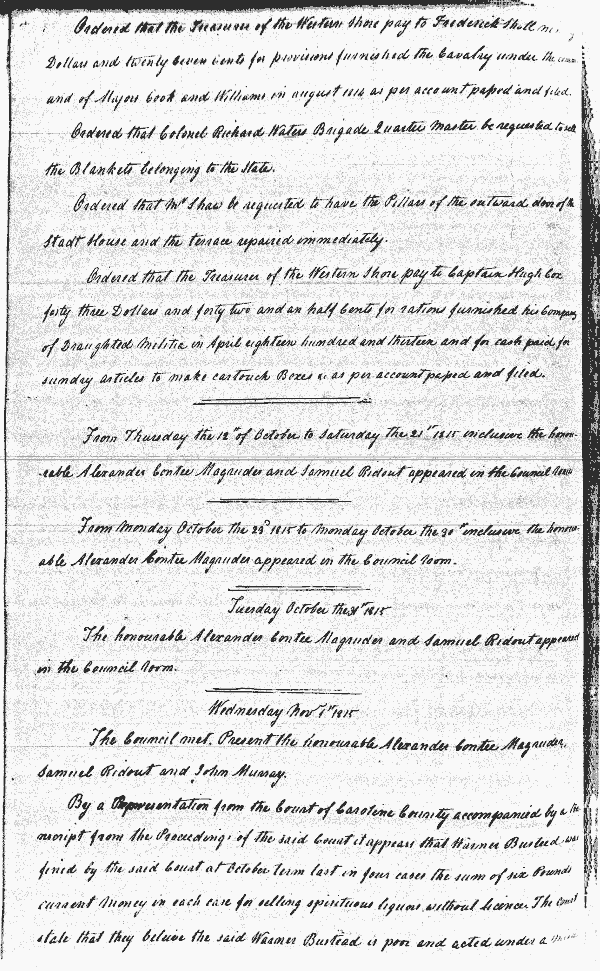 Ordered that the Treasurer of the Western Shore pay to Frederick Sholl
Dollars and twenty seven Cents for provisions furnished the Cavalry under the
and of Majors Cook and Williams in august 1814 as per account passed and filed.
Ordered that Colonel Richard Waters Brigade Quarter Master be requested to sell
the Blankets belonging to the State.
Ordered that Mr Shaw be requested to have the Pillars of the outward door of the
Stadt House and the terrace repaired immediately.
Ordered that the Treasurer of the Western Shore pay to Captain Hugh Cox
forty three Dollars and forty two and an half Cents for rations furnished his Company
of Draughted Militia in April eighteen hundred and thirteen and for cash paid for
sundry articles to make cartouch Boxes &c as per account passed and filed.
From Thursday the 12th of October to Saturday the 21st 1815 inclusive the honou-
rable Alexander Contee Magruder and Samuel Ridout appeared in the Council room
From Monday October the 23d 1815 to Monday October the 30th inclusive the honour-
able Alexander Contee Magruder appeared in the Council room.
Tuesday October the 31st 1815
The honourable Alexander Contee Magruder and Samuel Ridout appeared
in the Council room.
Wednesday Novr 1st 1815
The Council met. Present the honourable Alexander Contee Magruder,
Samuel Ridout and John Murray.
By a Representation from the Court of Caroline County accompanied by a
receipt from the Proceedings of the said Court it appears that Warner Busteed was
fined by the said Court at October term last in four cases the sum of six Pounds
current money in each case for selling spirituous liquors without licence. The Court
state that they believe the said Warner Busteed is poor and acted under a